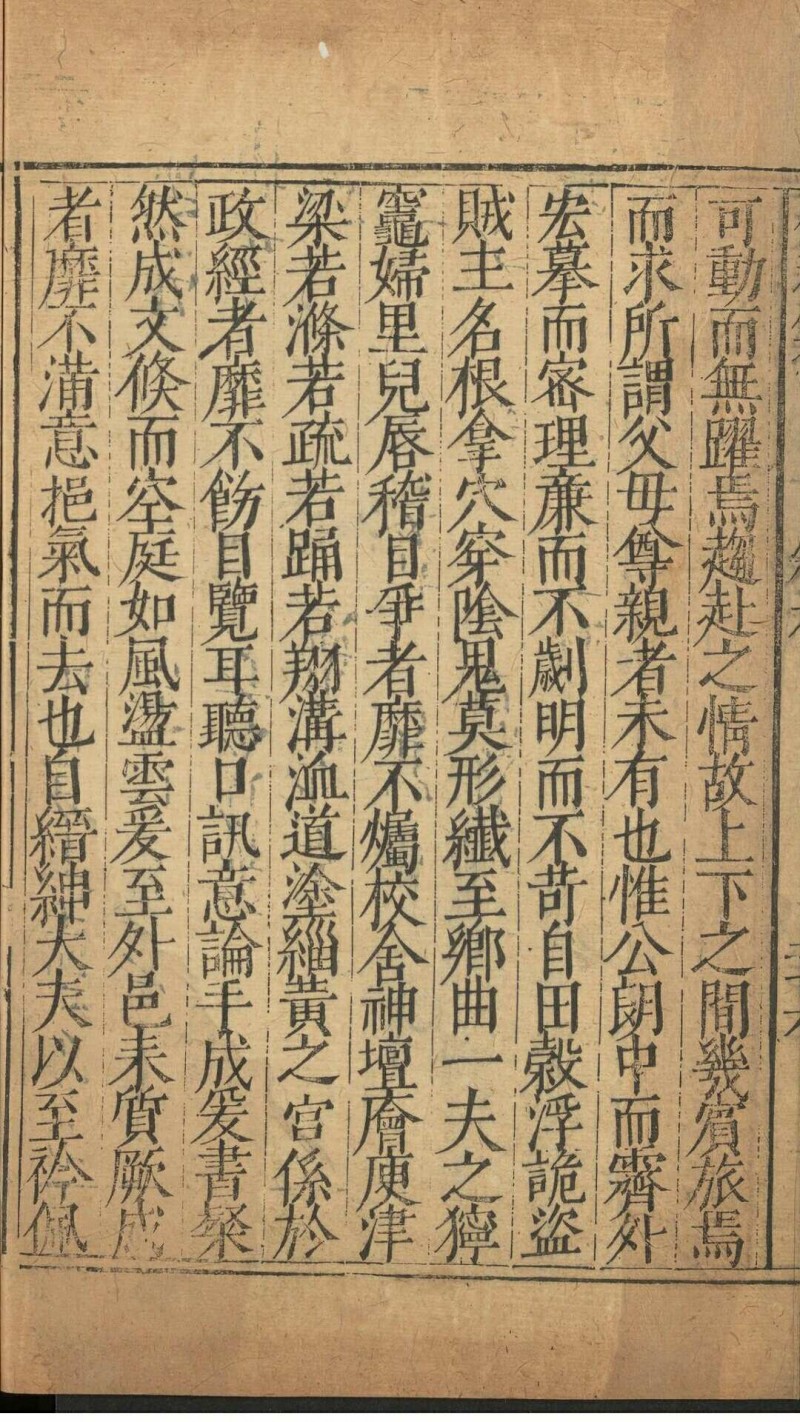 可動而無躍焉趨赴之情故上下之間幾賓旅焉
而求所謂父母尊親者未有也惟公朗中而霽外
宏摹而密理亷而不劌明而不苛自田穀浮詭盜
賊主名根拿穴穿陰鬼莫形纎至鄉曲一夫之獰
竈婦里兒唇稽目爭者靡不燭校舍神壇廥庾津
梁若滌若疏若踊若翔溝洫道塗緇黃之宮係於
政經者靡不飭目覽耳聽口訊意論手成爰書粲
然成文倏而空庭如風盪雲爰至外邑耒質厥成
者靡不滿意挹氣而去也自縉紳大夫以至衿佩